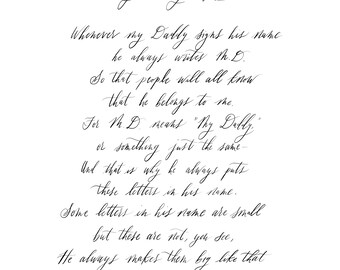 Whenever my Daddy signs his name
he always writes M.D.
So that people will all know
that he belongs to me.
For M.D means "My Daddy"
or something just the same-
And that is why he always puts
these letters in his name.
Some letters in his name are small
but these are not, you see,
He always makes them big like that